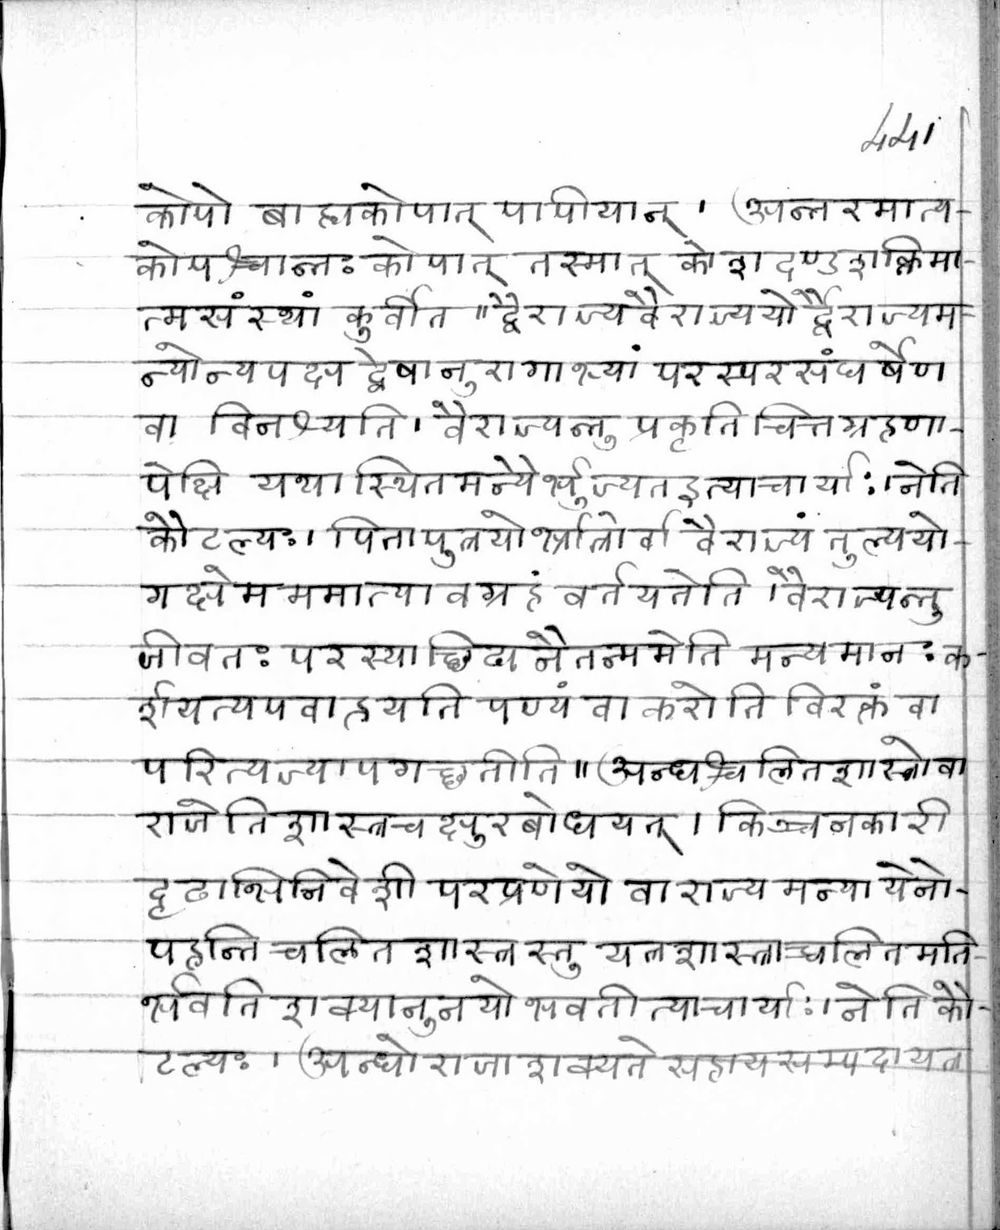 441
कोपो बाह्यकोपात् पापीयान् । अन्तरमात्य-
कोपश्चान्तः कोपात् तस्मात् कोशदण्डशक्तिमा-
त्मसंस्थां कुर्वीत ॥ द्वैराज्यवैराज्ययोर्द्वैराज्यम-
न्योन्यपक्षद्वेषानुरागाभ्यां परस्परसंघर्षेण
वा विनश्यति । वैराज्यन्तु प्रकृतिचित्तग्रहणा-
पेक्षि यथास्थितमन्यैर्भुज्यत इत्याचार्याः । नेति
कौटल्यः । पितापुत्रयोर्भ्रात्रोर्वा वैराज्यं तुल्ययो-
गक्षेमममात्यावग्रहं वर्तयतेति । वैराज्यन्तु
जीवतः परस्याछिद्य नैतन्ममेति मन्यमानः क-
र्शयत्यपवाहयति पण्यं वा करोति विरक्तं वा
परित्यज्यापगच्छतीति ॥ अन्धश्चलितशास्त्रो वा
राजेति शास्त्रचक्षुरबोधयन् । किञ्चनकारी
दृढाभिनिवेशी परप्रणेयो वा राज्यमन्यायेनो-
पहन्ति चलितशास्त्रस्तु यत्र शास्त्राच्चलितमति-
र्भवति शक्यानुनयो भवतीत्याचार्याः । नेति कौ-
टल्यः । अन्धो राजा शक्यते सहायसम्पदा यत्र